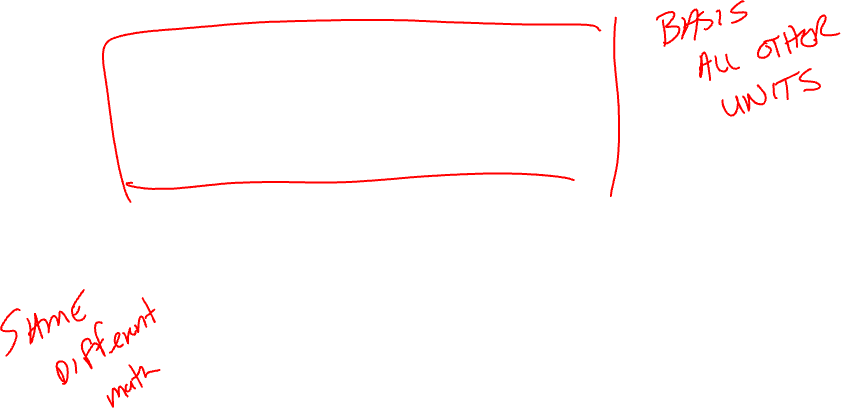 BASIS
ALL OTHER
UNITS
SAME
DIfferent
math